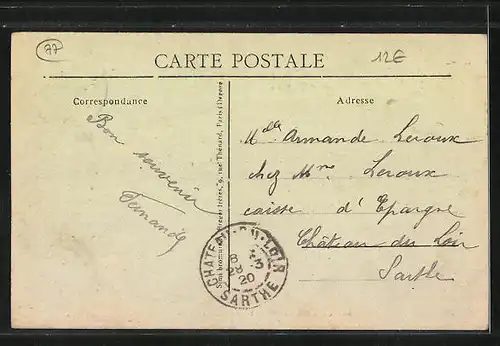 77
12€
CARTE POSTALE
Correspondance
Adresse
Bon souvenir
Fernande
Mdlle Armande Leroux
chez Mme Leroux
caisse d'Epargne
Château du Loir
Sarthe
CHATEAU-DU-LOIR
8
28 3
20
SARTHE
rue Thénard, Paris